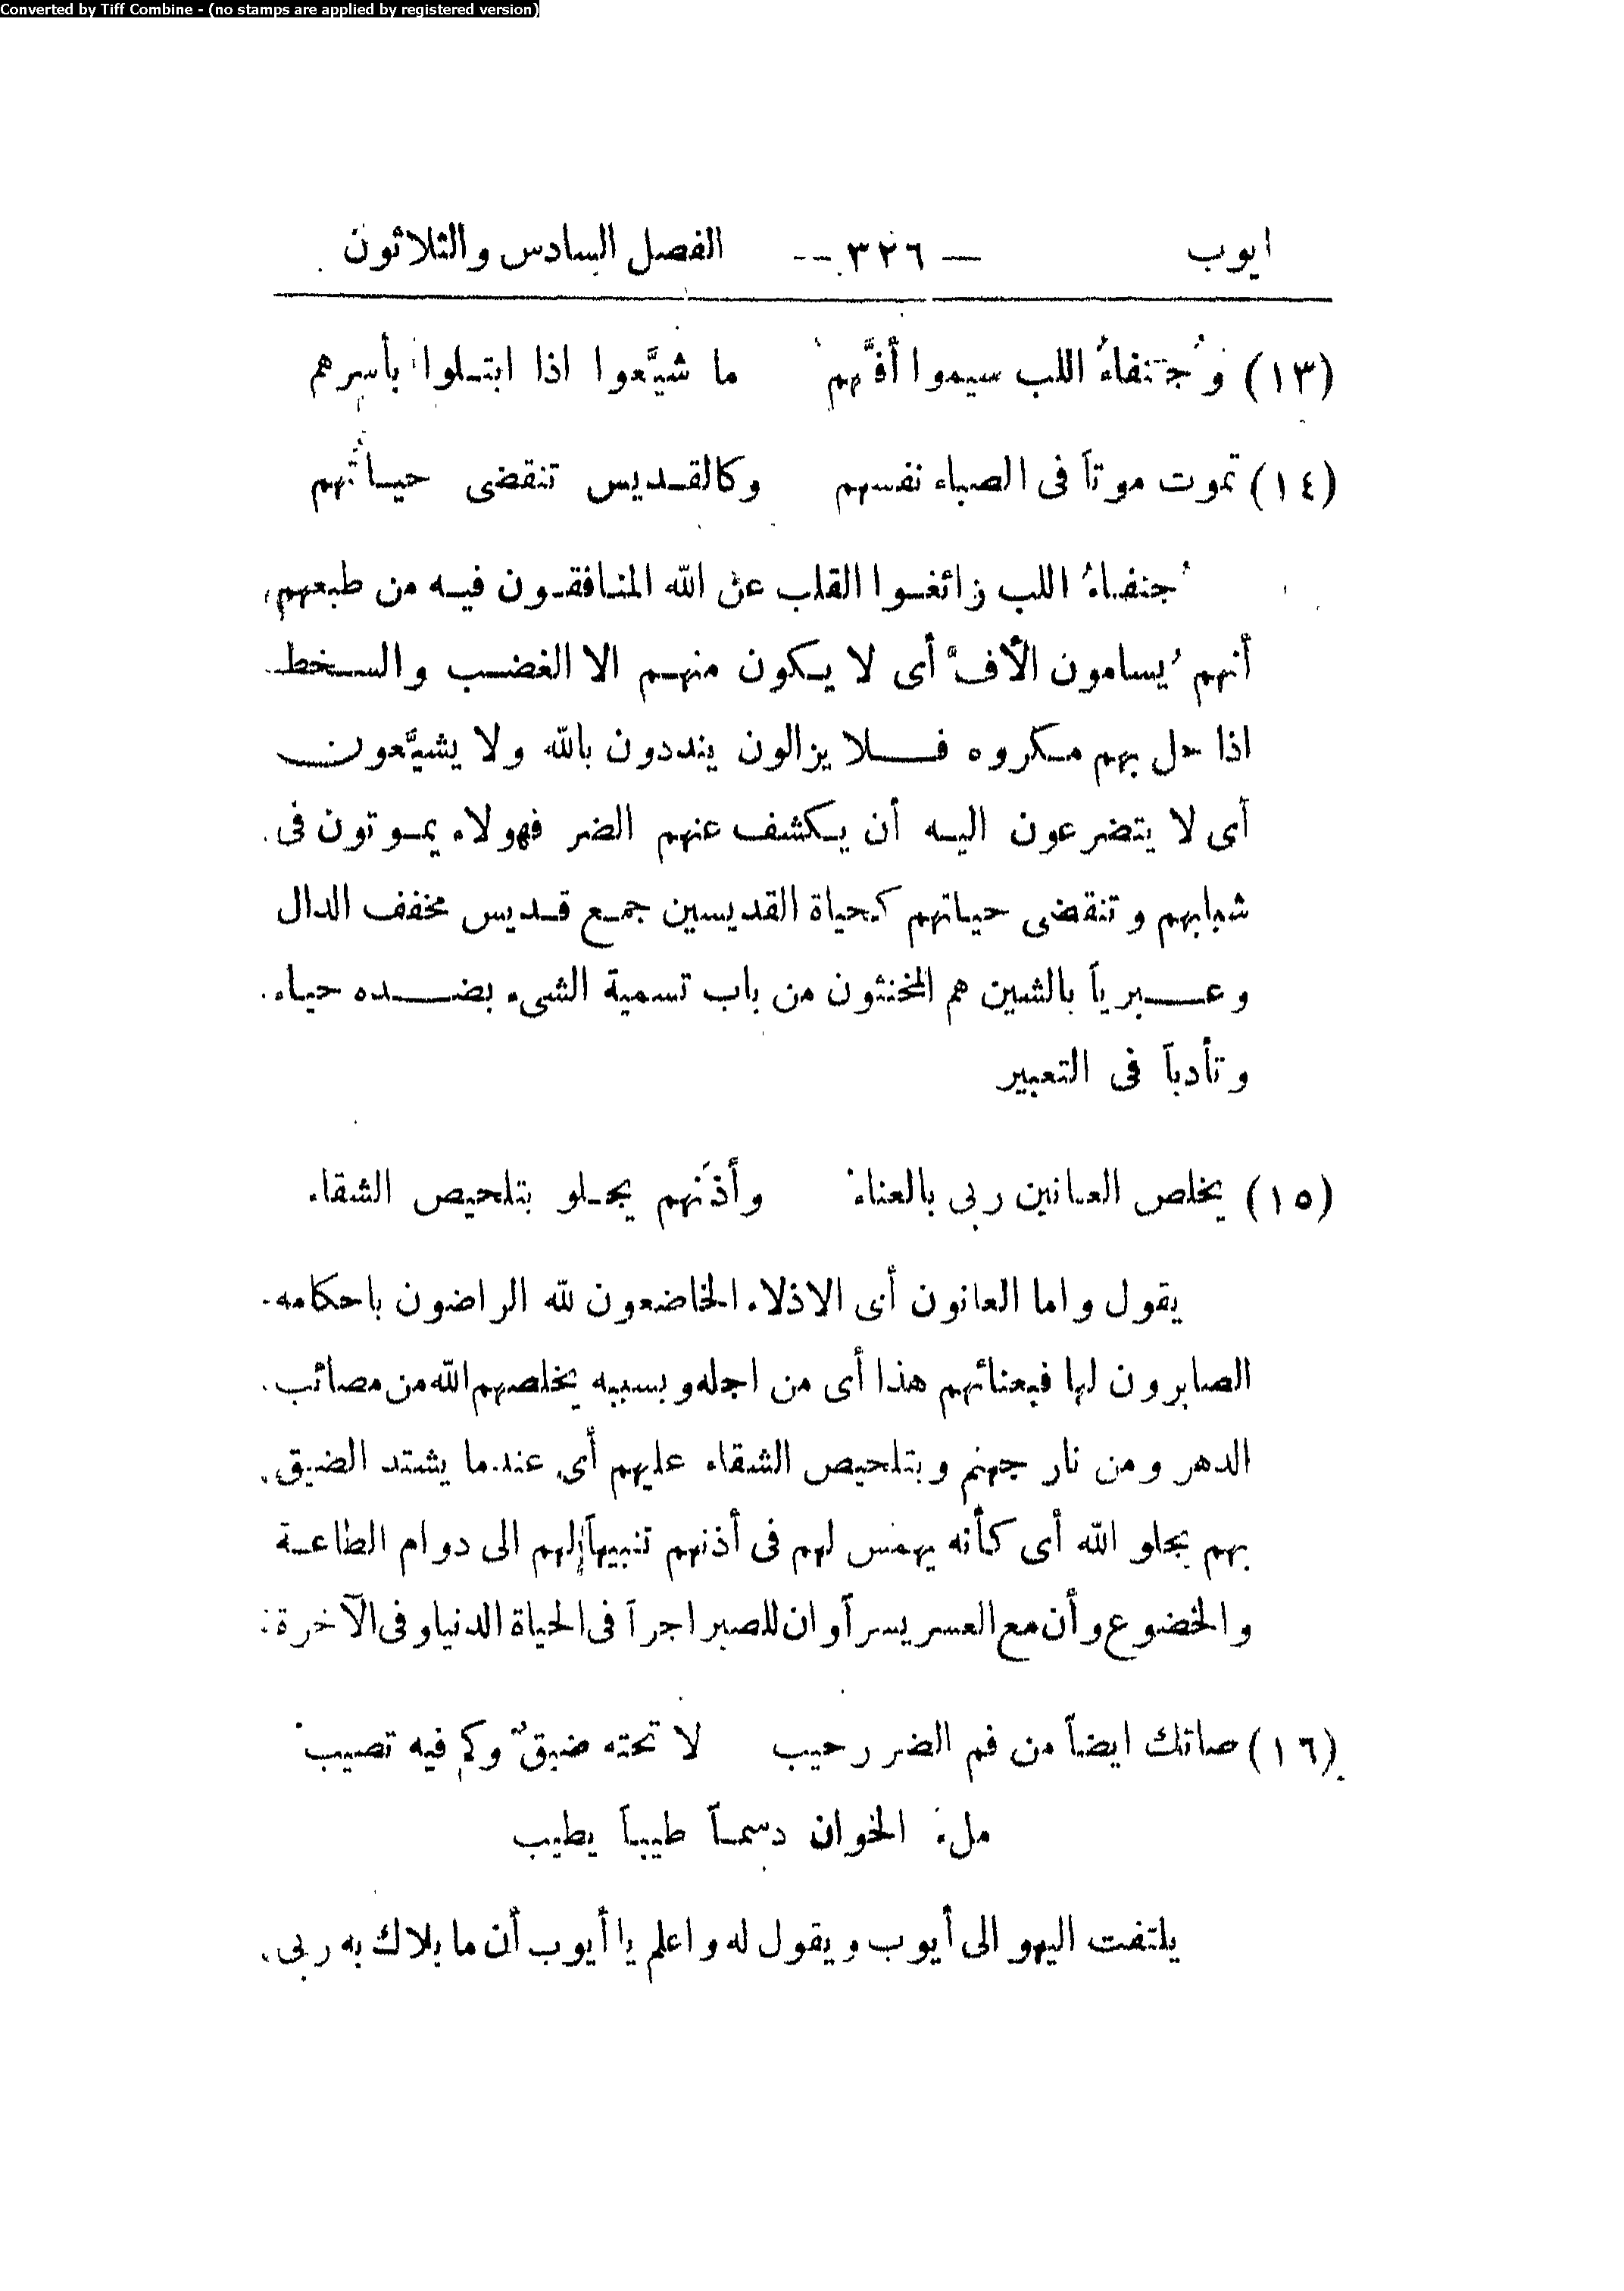 Converted by Tiff Combine - (no stamps are applied by registered version)
ايوب — ٣٢٦ -- الفصل السادس والثلاثون
(١٣) وُجنفاءُ اللب سيموا أفَّهم ما شيَّعوا اذا ابتلوا بأسرهم
(١٤) تموت موتاً فى الصباء نفسهم وكالقديس تنقضى حياتُهم
ُجنفاءُ اللب زائغوا القلب عن الله المنافقون فيه من طبعهم
أنهم ُيسامون الأفّ أى لا يكون منهم الا الغضب والسخط
اذا حل بهم مكروه فلا يزالون ينددون بالله ولا يشيَّعون
أى لا يتضرعون اليه أن يكشف عنهم الضر فهولاء يموتون فى
شبابهم وتنقضى حياتهم كحياة القديسين جمع قديس مخفف الدال
وعبرياً بالشين هم المخنثون من باب تسمية الشىء بضده حياء
وتأدباً فى التعبير
(١٥) يخلص العانين ربى بالعناءْ وأذنَهم يجلو بتلحيص الشقاء
يقول واما العانون أى الاذلاء الخاضعون لله الراضون باحكامه
الصابرون لها فبعنائهم هذا أى من اجله وبسببه يخلصهم الله من مصائب
الدهر ومن نار جهنم وبتلحيص الشقاء عليهم أى عندما يشتد الضيق
بهم يجلو الله أى كأنه يهمس لهم فى أذنهم تنبيهاً لهم الى دوام الطاعة
والخضوع وأن مع العسر يسراً وان للصبر اجراً فى الحياة الدنيا وفى الآخرة
(١٦) صاتك ايضاً من فم الضر رحيب لا تحته ضيقٌ وكم فيه تصيبْ
ملءْ الخوان دسماً طيباً يطيب
يلتفت اليهو الى أيوب ويقول له واعلم يا أيوب أن ما بلاك به ربى